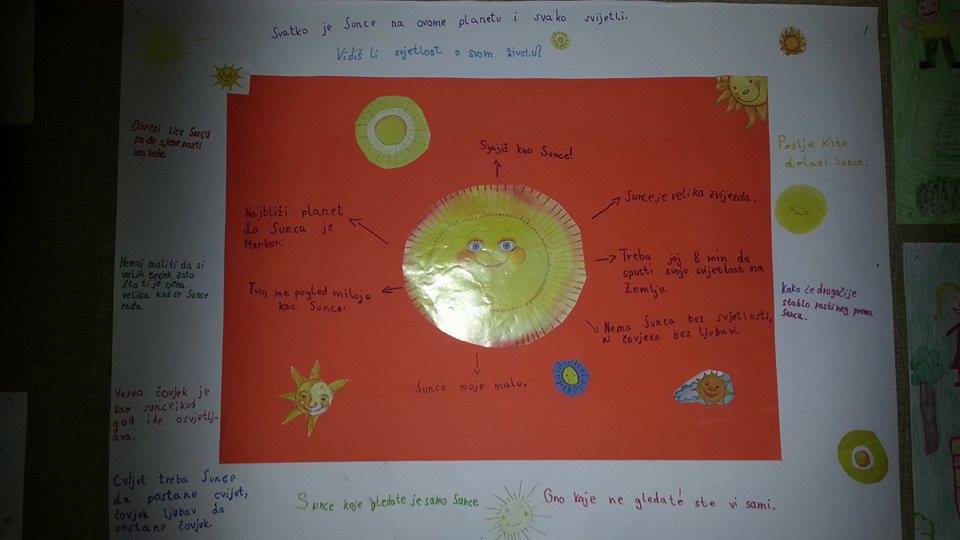 Svatko je Sunce na ovome planetu i svako svijetli.
Vidiš li svjetlost u svom životu?
Okreni lice Suncu
pa će sjene pasti
iza tebe.
Nemoj misliti da si
velik čovjek zato
što ti je sjena
velika kad se Sunce
rađa.
Veseo čovjek je
kao sunce; kud
god ide osvjetlj-
ava.
Cvijet treba Sunce
da postane cvijet,
čovjek ljubav da
postane čovjek.
Sjajiš kao Sunce!
Najbliži planet
do Sunca je
Merkur.
Tvoj me pogled miluje
kao Sunce.
Sunce moje malo.
Sunce je velika zvijezda.
Treba joj 8 min da
spusti svoju svijetlost na
Zemlju.
Nema Sunca bez svjetlosti,
ni čovjeka bez ljubavi.
Poslje kiše
dolazi Sunce.
Kako će drugačije
stablo rasti neg prema
Suncu.
Sunce koje gledate je samo Sunce
Ono koje ne gledate ste vi sami.